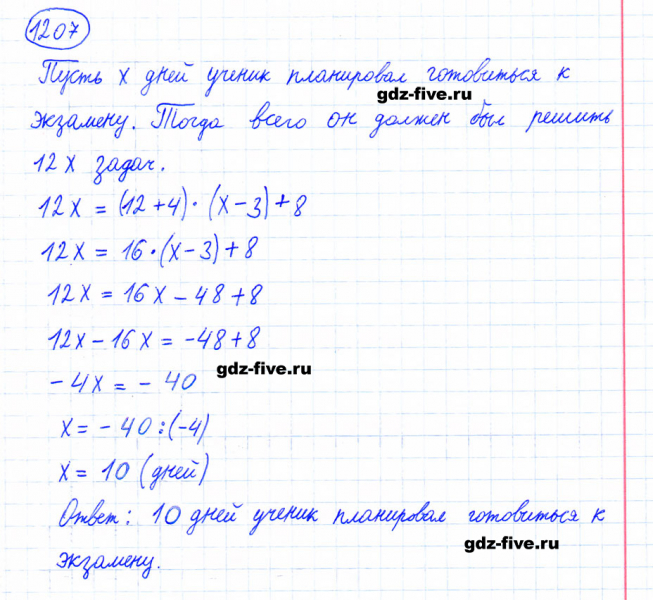 1207
Пусть x дней ученик планировал готовиться к
gdz-five.ru
экзамену. Тогда всего он должен был решить
12x задач.
12x = (12+4)·(x-3)+8
12x = 16·(x-3)+8
12x = 16x-48+8
12x-16x = -48+8
gdz-five.ru
-4x = -40
x = -40:(-4)
x = 10 (дней)
Ответ: 10 дней ученик планировал готовиться к
gdz-five.ru
экзамену.